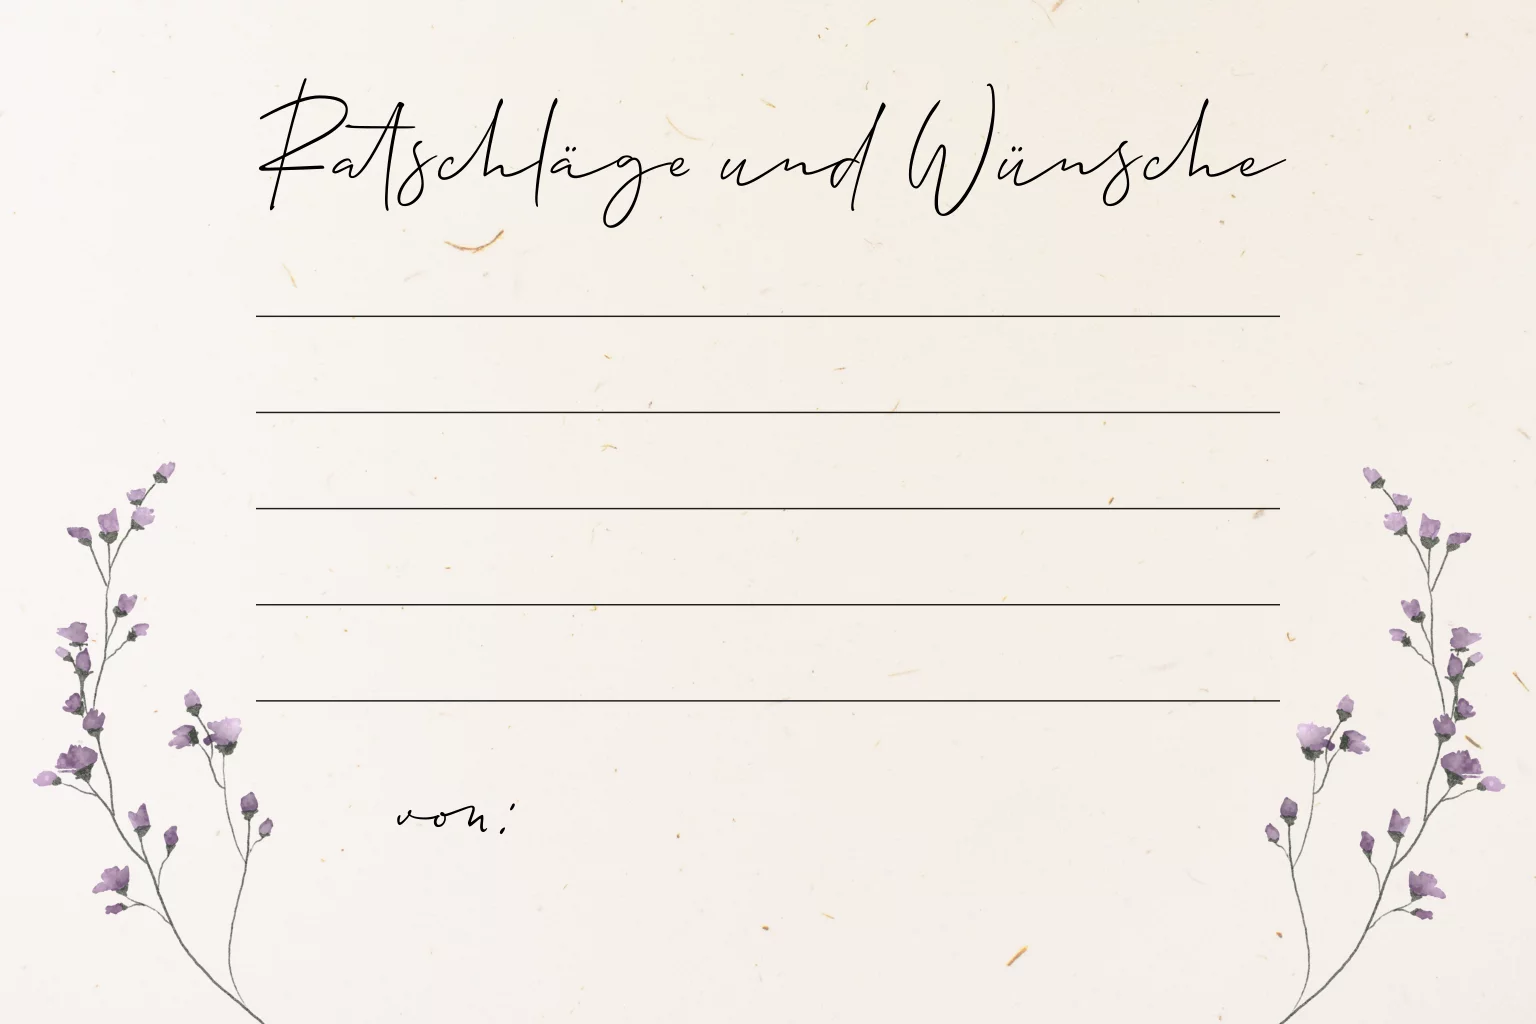 Ratschläge und Wünsche
von: